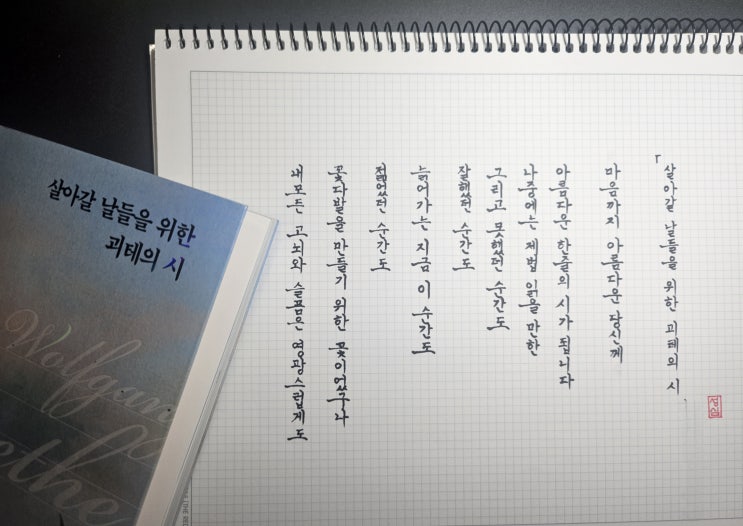 살아갈 날들을 위한
괴테의 시
Wolfgan
ethe
내 모든 고뇌와 슬픔은 영광스럽게도
꽃다발을 만들기 위한 꽃이었구나
젊었던 순간도
늙어가는 지금 이 순간도
잘했던 순간도
그리고 못했던 순간도
나중에는 제법 읽을 만한
아름다운 한 줄의 시가 됩니다
마음까지 아름다운 당신께
「살아갈 날들을 위한 괴테의 시
성심